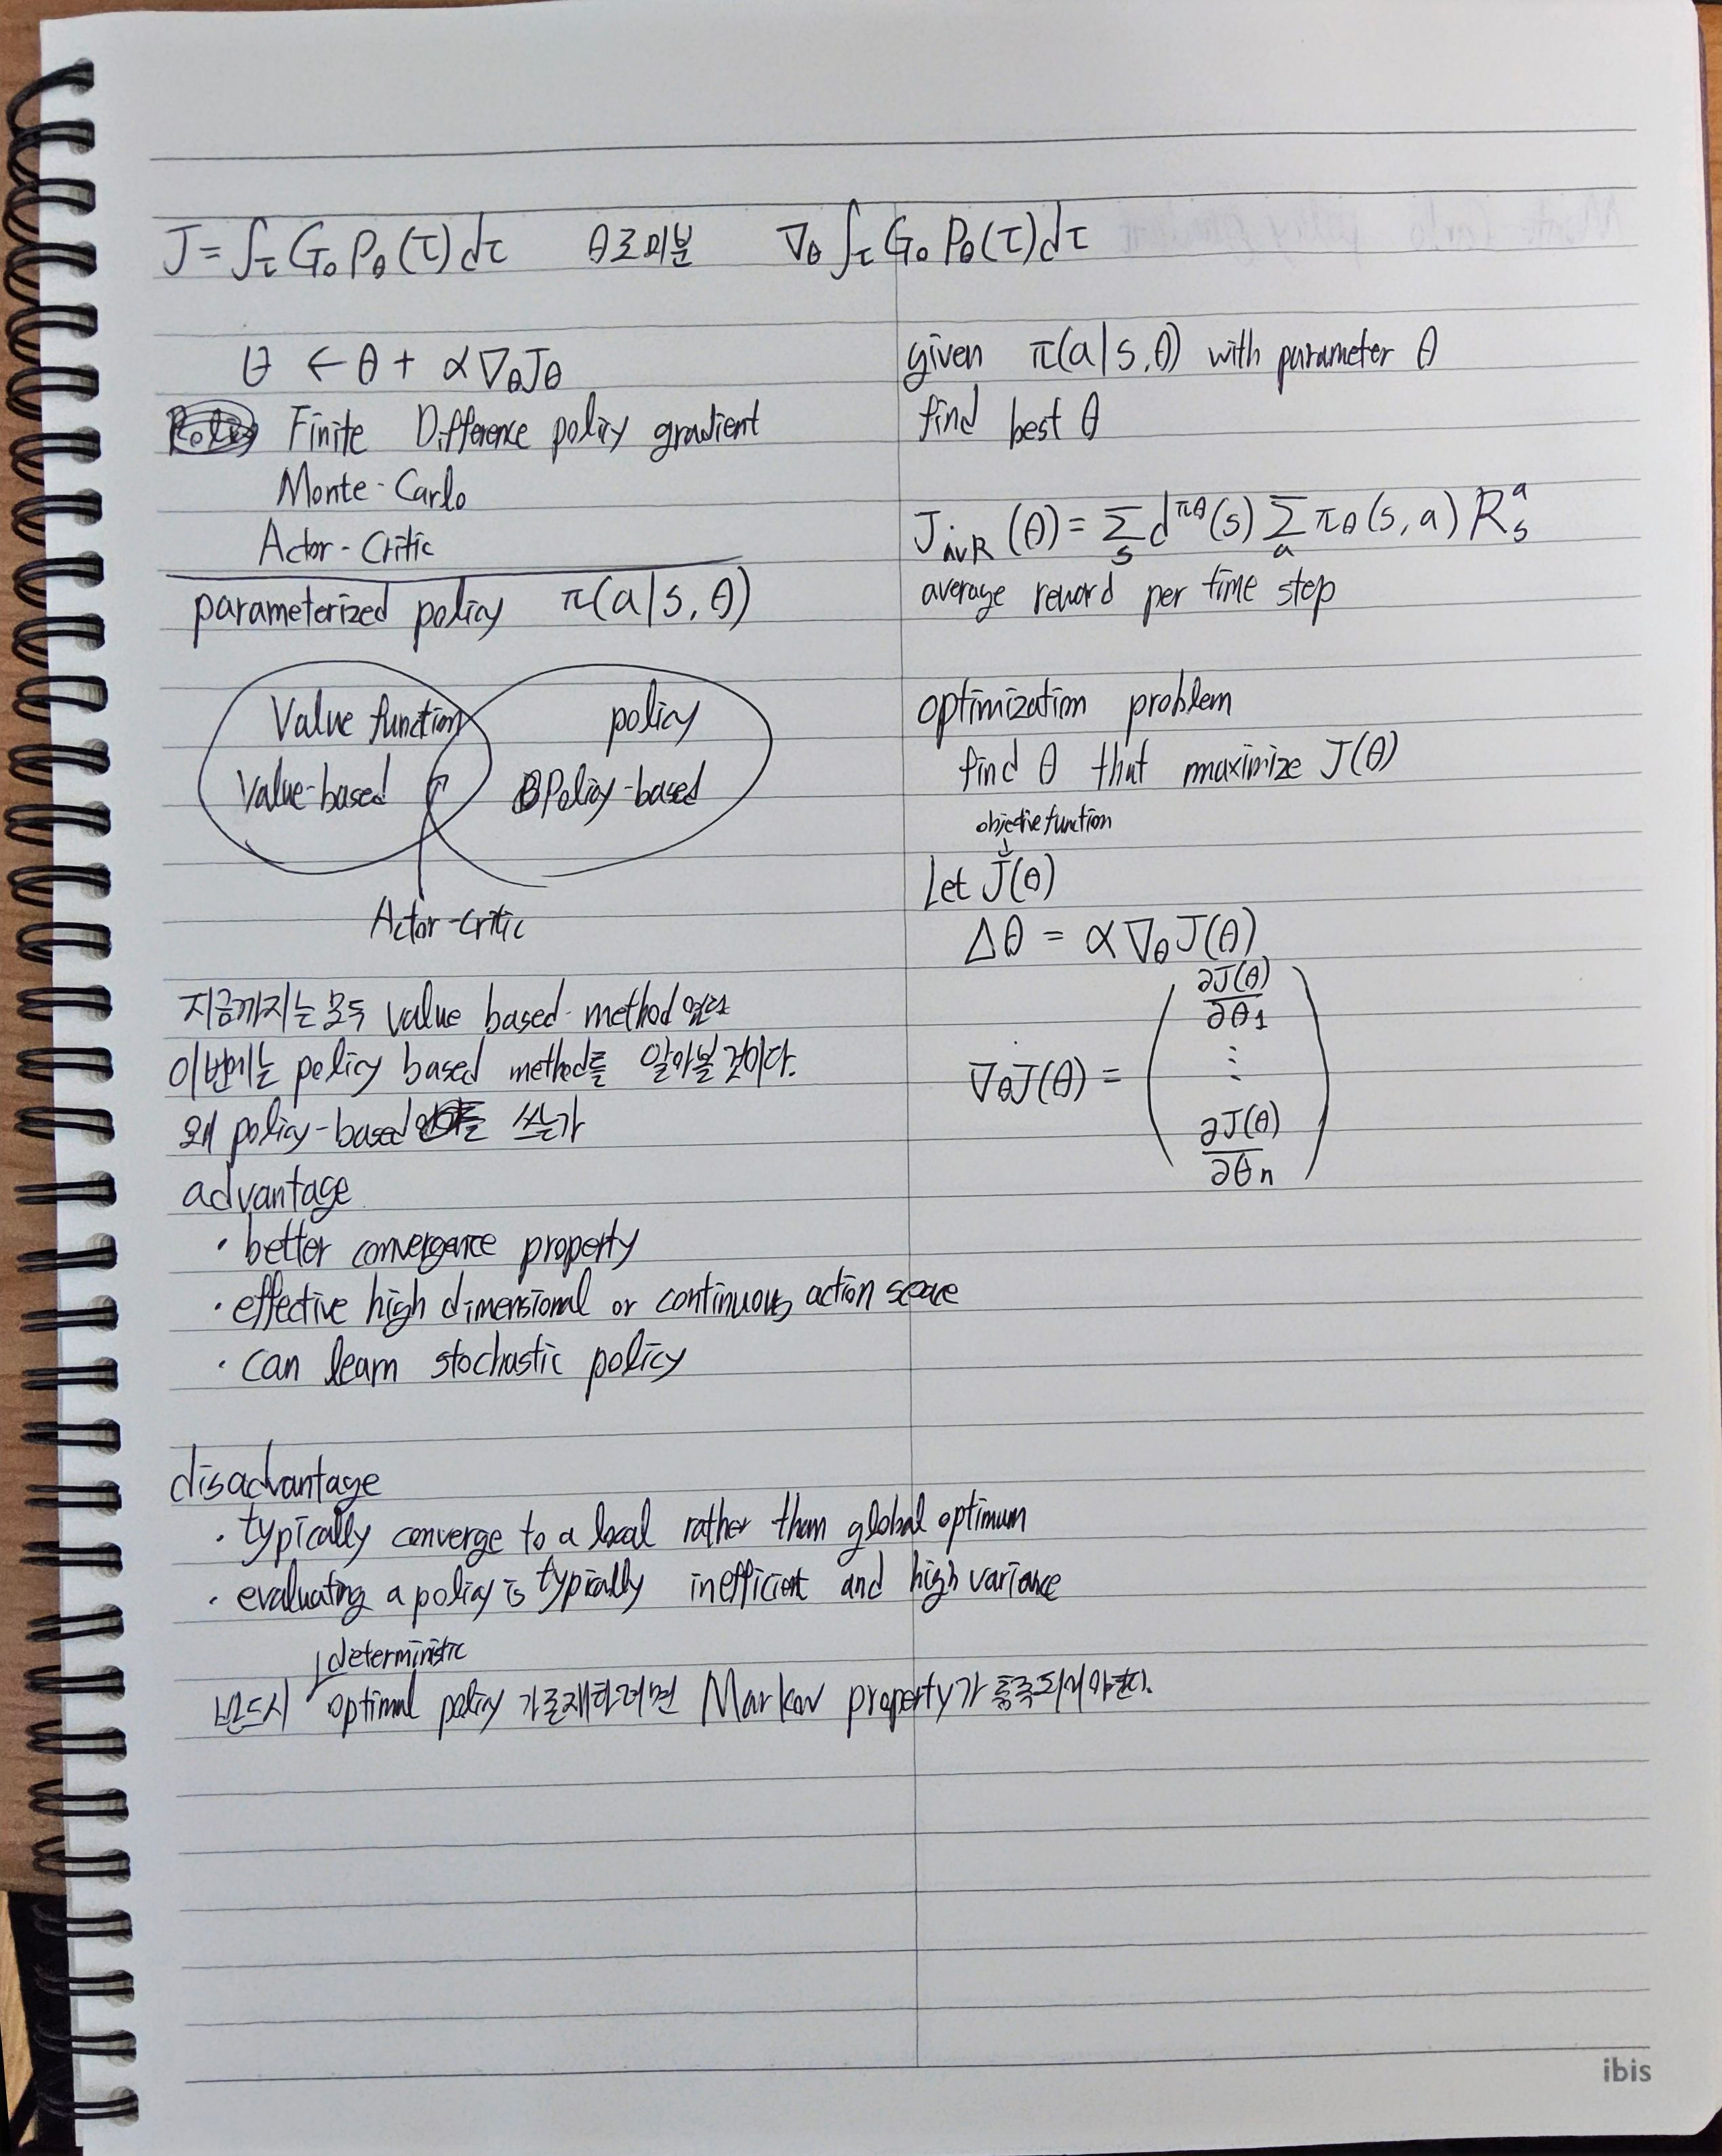 J = ∫_τ G₀ P_θ(τ) dτ θ로 미분 ∇_θ ∫_τ G₀ P_θ(τ) dτ
θ ← θ + α ∇_θ J_θ
Finite Difference policy gradient
Monte-Carlo
Actor-Critic
parameterized policy π(a|s,θ)
Value function
Value-based
policy
Policy-based
Actor-critic
지금까지는 모두 value based method 였다
이번에는 policy based method를 알아볼 것이다.
왜 policy-based를 쓰는가
advantage
· better convergence property
· effective high dimensional or continuous action space
· can learn stochastic policy
disadvantage
· typically converge to a local rather than global optimum
· evaluating a policy is typically inefficient and high variance
deterministic
반드시 optimal policy 가 존재하려면 Markov property가 충족되어야한다.
given π(a|s,θ) with parameter θ
find best θ
J_avR (θ) = Σ_s d^πθ(s) Σ_a π_θ(s,a) R_s^a
average reward per time step
optimization problem
find θ that maximize J(θ)
objective function
↓
Let J(θ)
Δθ = α ∇_θ J(θ)
∇_θ J(θ) = ( ∂J(θ)/∂θ₁ ⋮ ∂J(θ)/∂θn )
ibis